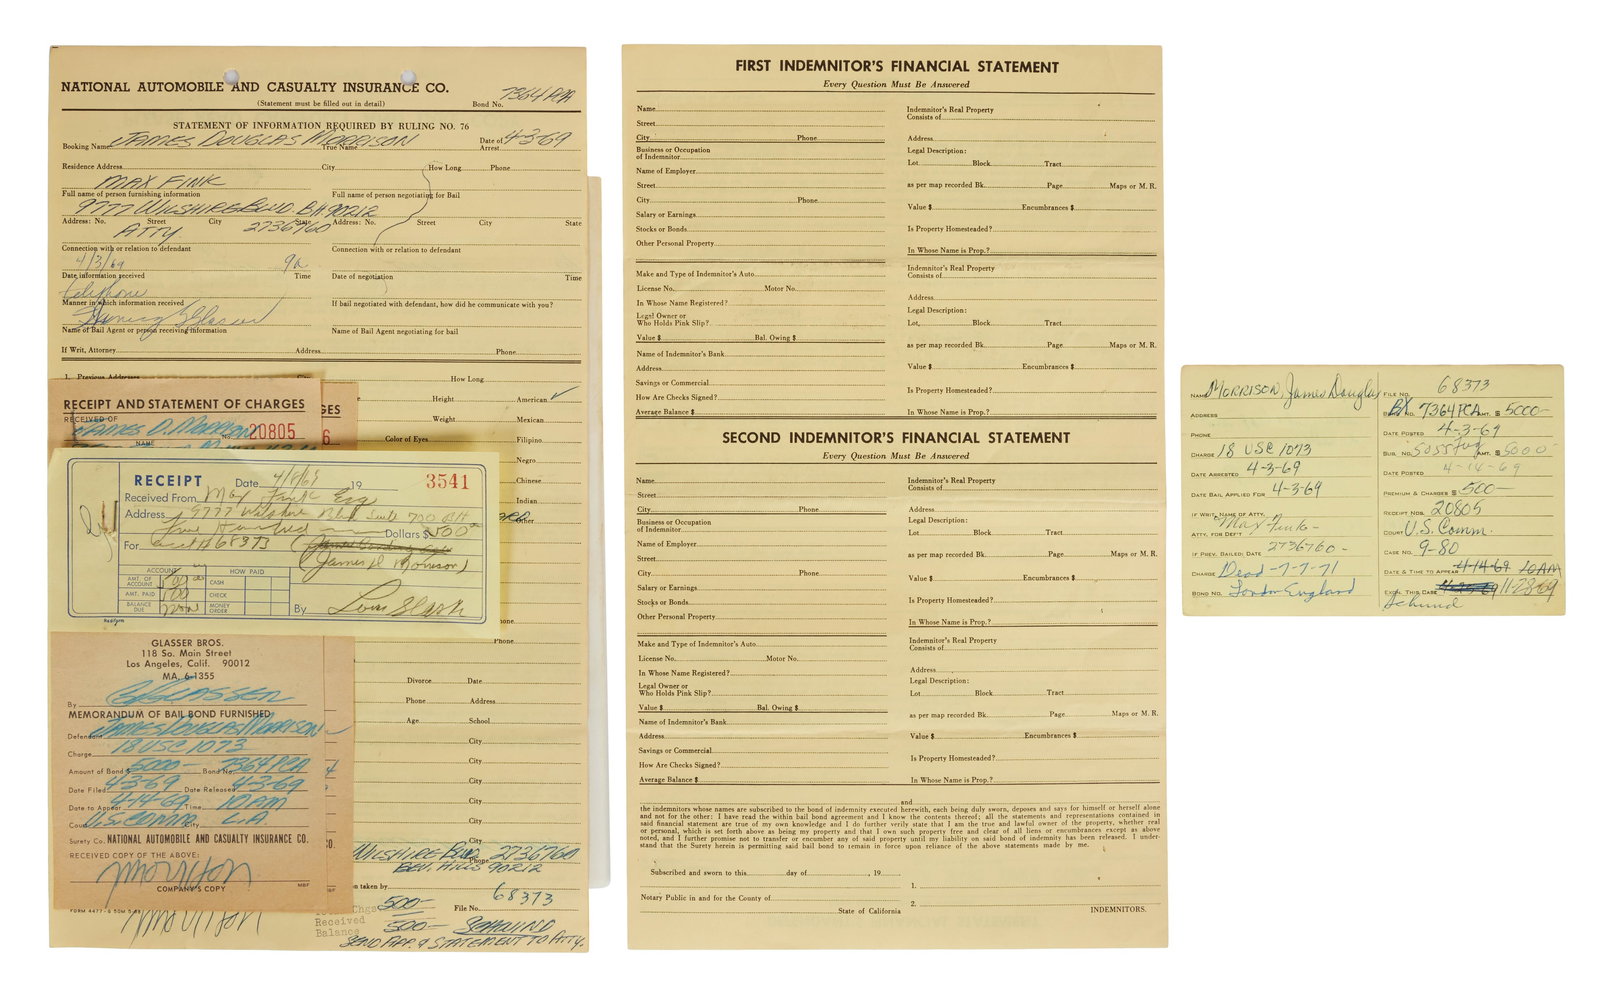 NATIONAL AUTOMOBILE AND CASUALTY INSURANCE CO.
(Statement must be filled out in detail)
Bond No. 7364 PCA
STATEMENT OF INFORMATION REQUIRED BY RULING NO. 76
Booking Name JAMES DOUGLAS MORRISON True Name Date of Arrest 4-3-69
Residence Address City How Long Phone
MAX FINK
Full name of person furnishing information Full name of person negotiating for Bail
9777 WILSHIRE BLVD. BH 90212
Address: No. Street City State Address: No. Street City State
ATTY 2736760
Connection with or relation to defendant Connection with or relation to defendant
4/3/69 9a
Date information received Time Date of negotiation Time
telephone
Manner in which information received If bail negotiated with defendant, how did he communicate with you?
Glasser
Name of Bail Agent or person receiving information Name of Bail Agent negotiating for bail
If Writ, Attorney Address Phone
1. Previous Addresses City How Long
Height American ✓
Weight Mexican
Color of Eyes Filipino
Negro
Chinese
Indian
Other
Phone
Divorce Date
Phone Address
Age School
City
City
City
City
City
City
WILSHIRE BLVD Phone 2736760
BEV. HILLS 90212
taken by
File No. 68373
Chgs 500-
Received
Balance 500- SCHWIND
SEND APP. & STATEMENT TO ATTY.
RECEIPT AND STATEMENT OF CHARGES
RECEIVED OF
JAMES D. MORRISON No. 20805
NAME
GES
6
RECEIPT Date 4/8/69 19 3541
Received From Max Fink Esq
Address 9777 Wilshire Blvd Suite 700 BH
Five Hundred Dollars $500
For acct # 68373 (
(James D Morrison)
ACCOUNT HOW PAID
AMT. OF ACCOUNT 500 CASH
AMT. PAID 500 CHECK
BALANCE DUE none MONEY ORDER
By
Rediform
GLASSER BROS.
118 So. Main Street
Los Angeles, Calif. 90012
MA. 6-1355
By GLASSER
MEMORANDUM OF BAIL BOND FURNISHED
Defendant JAMES DOUGLAS MORRISON
Charge 18 USC 1073
Amount of Bond $ 5000- Bond No. 7364 PCA
Date Filed 4-3-69 Date Released 4-3-69
Date to Appear 4-14-69 Time 10 AM
Court U.S. COMM. City L.A
Surety Co. NATIONAL AUTOMOBILE AND CASUALTY INSURANCE CO.
RECEIVED COPY OF THE ABOVE:
Morrison
COMPANY'S COPY MBF
FORM 4477
FIRST INDEMNITOR'S FINANCIAL STATEMENT
Every Question Must Be Answered
Name
Street
City Phone
Business or Occupation
of Indemnitor
Name of Employer
Street
City Phone
Salary or Earnings
Stocks or Bonds
Other Personal Property
Make and Type of Indemnitor's Auto
License No. Motor No.
In Whose Name Registered?
Legal Owner or
Who Holds Pink Slip?
Value $ Bal. Owing $
Name of Indemnitor's Bank
Address
Savings or Commercial
How Are Checks Signed?
Average Balance $
Indemnitor's Real Property
Consists of
Address
Legal Description:
Lot Block Tract
as per map recorded Bk. Page Maps or M. R.
Value $ Encumbrances $
Is Property Homesteaded?
In Whose Name is Prop.?
Indemnitor's Real Property
Consists of
Address
Legal Description:
Lot, Block Tract
as per map recorded Bk. Page Maps or M. R.
Value $ Encumbrances $
Is Property Homesteaded?
In Whose Name is Prop.?
SECOND INDEMNITOR'S FINANCIAL STATEMENT
Every Question Must Be Answered
Name
Street
City Phone
Business or Occupation
of Indemnitor
Name of Employer
Street
City Phone
Salary or Earnings
Stocks or Bonds
Other Personal Property
Make and Type of Indemnitor's Auto
License No. Motor No.
In Whose Name Registered?
Legal Owner or
Who Holds Pink Slip?
Value $ Bal. Owing $
Name of Indemnitor's Bank
Address
Savings or Commercial
How Are Checks Signed?
Average Balance $
Indemnitor's Real Property
Consists of
Address
Legal Description:
Lot Block Tract
as per map recorded Bk. Page Maps or M. R.
Value $ Encumbrances $
Is Property Homesteaded?
In Whose Name is Prop.?
Indemnitor's Real Property
Consists of
Address
Legal Description:
Lot Block Tract
as per map recorded Bk. Page Maps or M. R.
Value $ Encumbrances $
Is Property Homesteaded?
In Whose Name is Prop.?
and
the indemnitors whose names are subscribed to the bond of indemnity executed herewith, each being duly sworn, deposes and says for himself or herself alone
and not for the other: I have read the within bail bond agreement and I know the contents thereof; all the statements and representations contained in
said financial statement are true of my own knowledge and I do further verily state that I am the true and lawful owner of the property, whether real
or personal, which is set forth above as being my property and that I own such property free and clear of all liens or encumbrances except as above
noted, and I further promise not to transfer or encumber any of said property until my liability on said bond of indemnity has been released. I under-
stand that the Surety herein is permitting said bail bond to remain in force upon reliance of the above statements made by me.
Subscribed and sworn to this day of , 19
1.
Notary Public in and for the County of
2.
State of California INDEMNITORS.
NAME MORRISON, James Douglas FILE NO. 68373
ADDRESS BOND NO. 7364 PCA AMT. $ 5000-
PHONE DATE POSTED 4-3-69
CHARGE 18 USC 1073 SUB. NO. AMT. $ 5000
DATE ARRESTED 4-3-69 DATE POSTED 4-14-69
DATE BAIL APPLIED FOR 4-3-69 PREMIUM & CHARGES $ 500-
IF WRIT, NAME OF ATTY. RECEIPT NOS. 20805
Max Fink-
ATTY. FOR DEF'T COURT U.S. Comm.
2736760-
IF PREV. BAILED: DATE CASE NO. 9-80
CHARGE Dead-7-7-71 DATE & TIME TO APPEAR 4-14-69 10AM
BOND NO. London England EXON. THIS CASE 11-28-69
Schwind